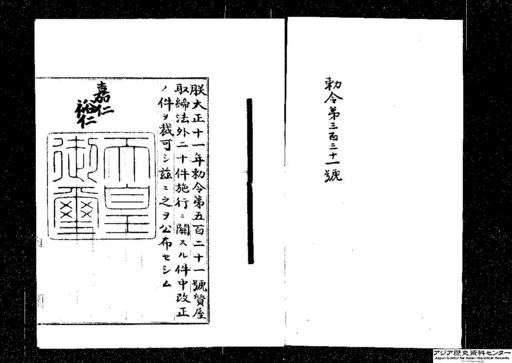 勅令第三百三十一號
朕大正十一年勅令第五百二十一號質屋
取締法外二十件施行ニ關スル件中改正
ノ件ヲ裁可シ茲ニ之ヲ公布セシム
嘉仁
裕仁
天皇
御璽
アジア歴史資料センター
Japan Center for Asian Historical Records